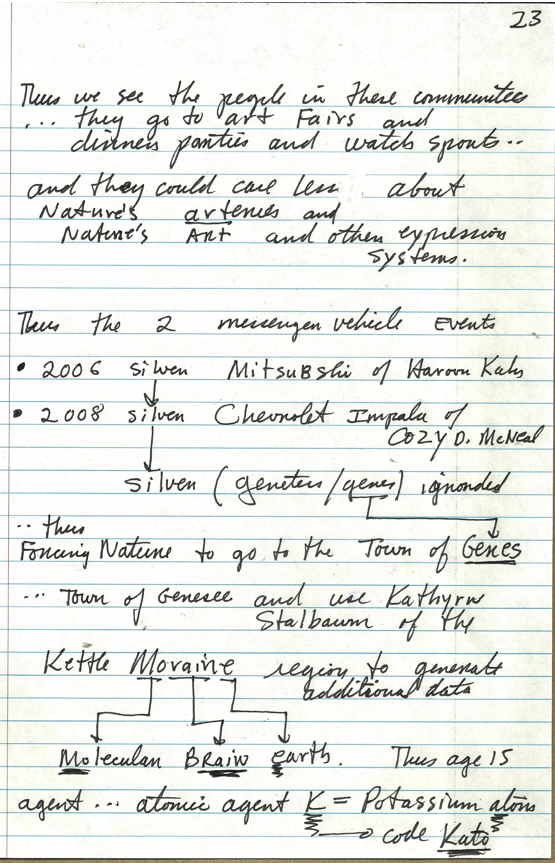 23
Thus we see the people in these communities
... they go to art Fairs and
dinners parties and watch sports..
and they could care less about
Nature's arteries and
Nature's ART and other expression
systems.
Thus the 2 messenger vehicle Events
• 2006 silver Mitsubshi of Haroon Kahn
• 2008 silver Chevrolet Impala of
Cozy D. McNeal
silver (geneters/genes) ignorded
.. thus
Forcing Nature to go to the Town of Genes
... Town of Genesee and use Kathyrn
Stalbaum of the
Kettle Moraine region to generate
additional data
Molecular BRain earth. Thus age 15
agent ... atomic agent K = Potassium atoms
code Kato